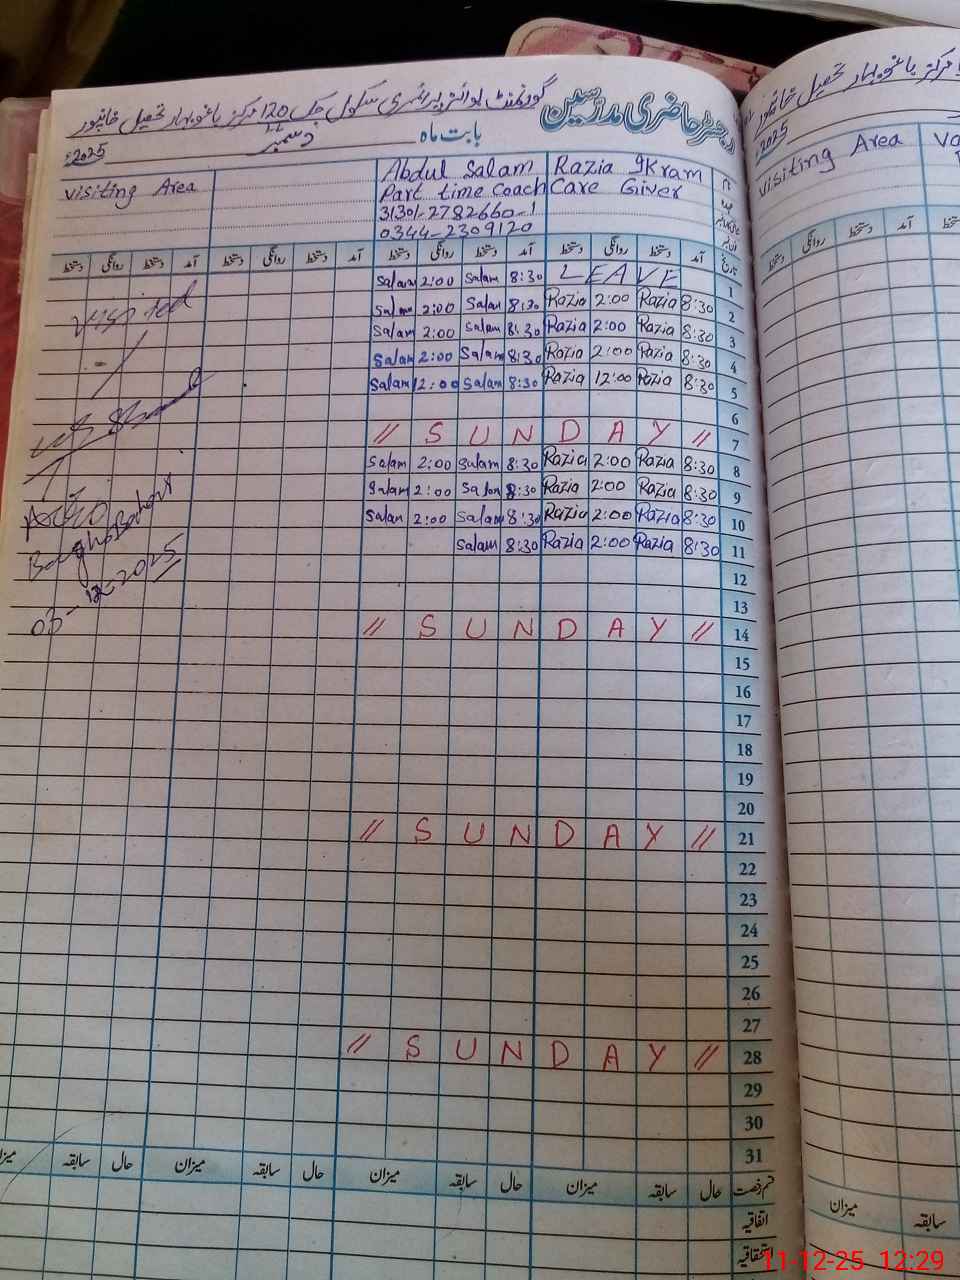 رجسٹر حاضری مدرسین
گورنمنٹ بوائز پرائمری سکول چک 120 مرکز باغوبہار تحصیل خانپور
بابت ماہ دسمبر 2025ء
Razia Ikram Abdul Salam Visiting Area
Care Giver Part time Coach
31301-2782660-1
0344-2309120
تاریخ آمد دستخط روانگی دستخط آمد دستخط روانگی دستخط آمد دستخط روانگی دستخط آمد دستخط روانگی دستخط
Salam 2:00 Salam 8:30 LEAVE 1
Salam 2:00 Salam 8:30 Razia 2:00 Razia 8:30 2
Salam 2:00 Salam 8:30 Razia 2:00 Razia 8:30 3
Salam 2:00 Salam 8:30 Razia 2:00 Razia 8:30 4
Salam 12:00 Salam 8:30 Razia 12:00 Razia 8:30 5
6
// S U N D A Y // 7
Salam 2:00 Salam 8:30 Razia 2:00 Razia 8:30 8
Salam 2:00 Salam 8:30 Razia 2:00 Razia 8:30 9
Salam 2:00 Salam 8:30 Razia 2:00 Razia 8:30 10
Salam 8:30 Razia 2:00 Razia 8:30 11
12
13
// S U N D A Y // 14
15
16
17
18
19
20
// S U N D A Y // 21
22
23
24
25
26
27
// S U N D A Y // 28
29
30
31
Visited
03-12-2025
قسم رخصت حال سابقہ میزان حال سابقہ میزان حال سابقہ میزان حال سابقہ
اتفاقیہ
استحقاقیہ
2025ء
Visiting Area
آمد دستخط روانگی دستخط
سابقہ میزان
11-12-25 12:29